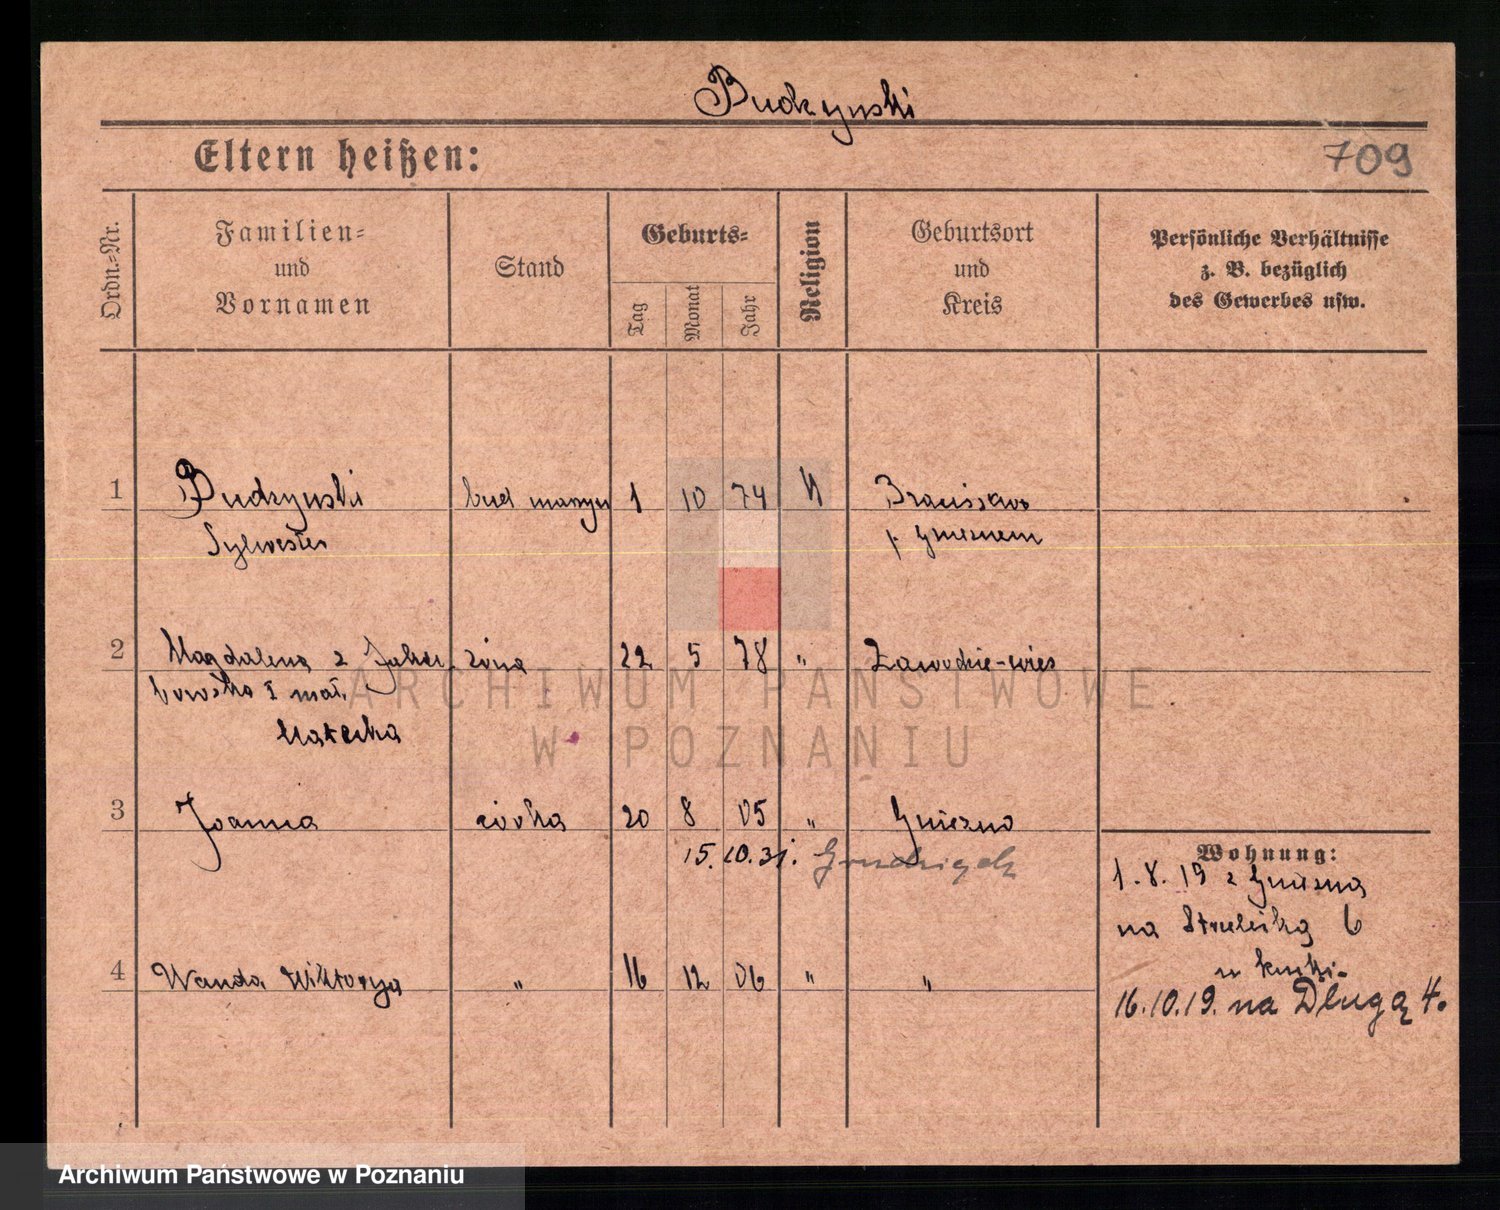 Budzyński
Eltern heißen:
709
Ordn.-Nr.
Familien- und Vornamen
Stand
Geburts-
Tag
Monat
Jahr
Religion
Geburtsort und Kreis
Persönliche Verhältnisse z. B. bezüglich des Gewerbes usw.
1 Budzyński bud 1 10 74
Sylwester p. Gnieznem
2 Magdalena z żona 22 5 78 " Zawodzie-wieś
I mał.
3 Joanna córka 20 8 05 " Gniezno
15.10.31. Grudziądz
Wohnung:
1.8.19 z Gniezna
na 6
4 Wanda Wiktorya " 16 12 06 " "
16.10.19. na Długą 4.
ARCHIWUM PAŃSTWOWE
W POZNANIU
Archiwum Państwowe w Poznaniu